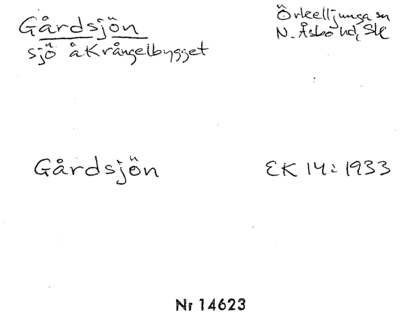 Gårdsjön
sjö å Krångelbygget
Örkelljunga sn
N. Åsbo hd, Sk
Gårdsjön
EK 14: 1933
Nr 14623